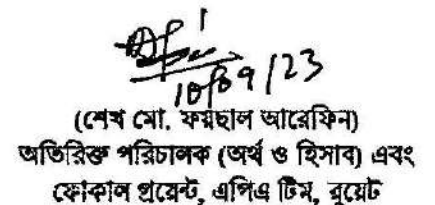 10/09/23
(শেখ মো. ফয়ছাল আরেফিন)
অতিরিক্ত পরিচালক (অর্থ ও হিসাব) এবং
ফোকাল প্রয়েন্ট, এপিএ টিম, বুয়েট